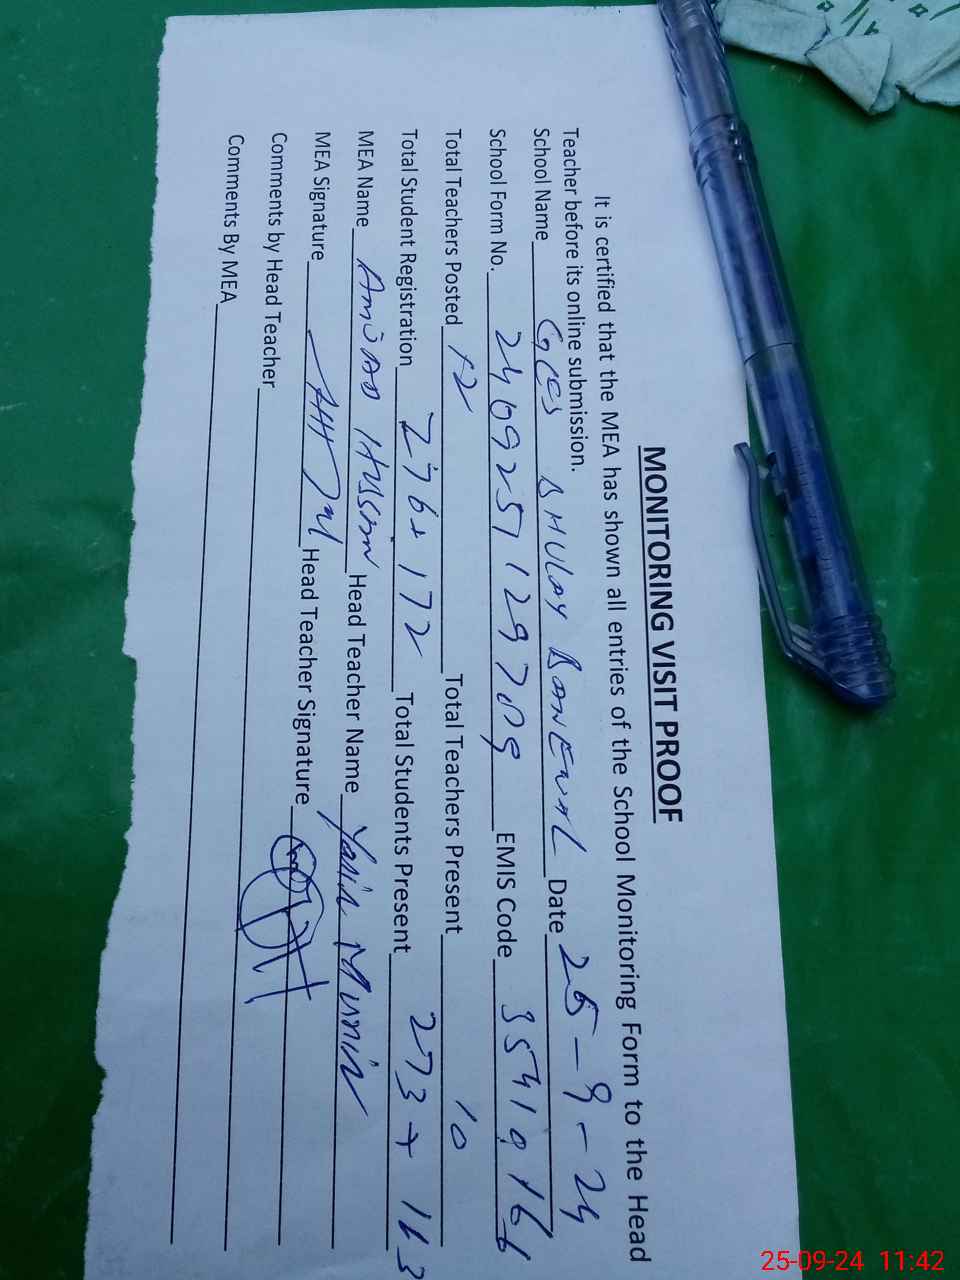 MONITORING VISIT PROOF
It is certified that the MEA has shown all entries of the School Monitoring Form to the Head
Teacher before its online submission.
School Name GCES BHULAY Date 25-9-24
School Form No. 240925112970 EMIS Code 35410166
Total Teachers Posted 12 Total Teachers Present 10
Total Student Registration 276+172 Total Students Present 273+163
MEA Name AMJAD HUSSAIN Head Teacher Name Munir
MEA Signature Head Teacher Signature
Comments by Head Teacher
Comments By MEA
25-09-24 11:42